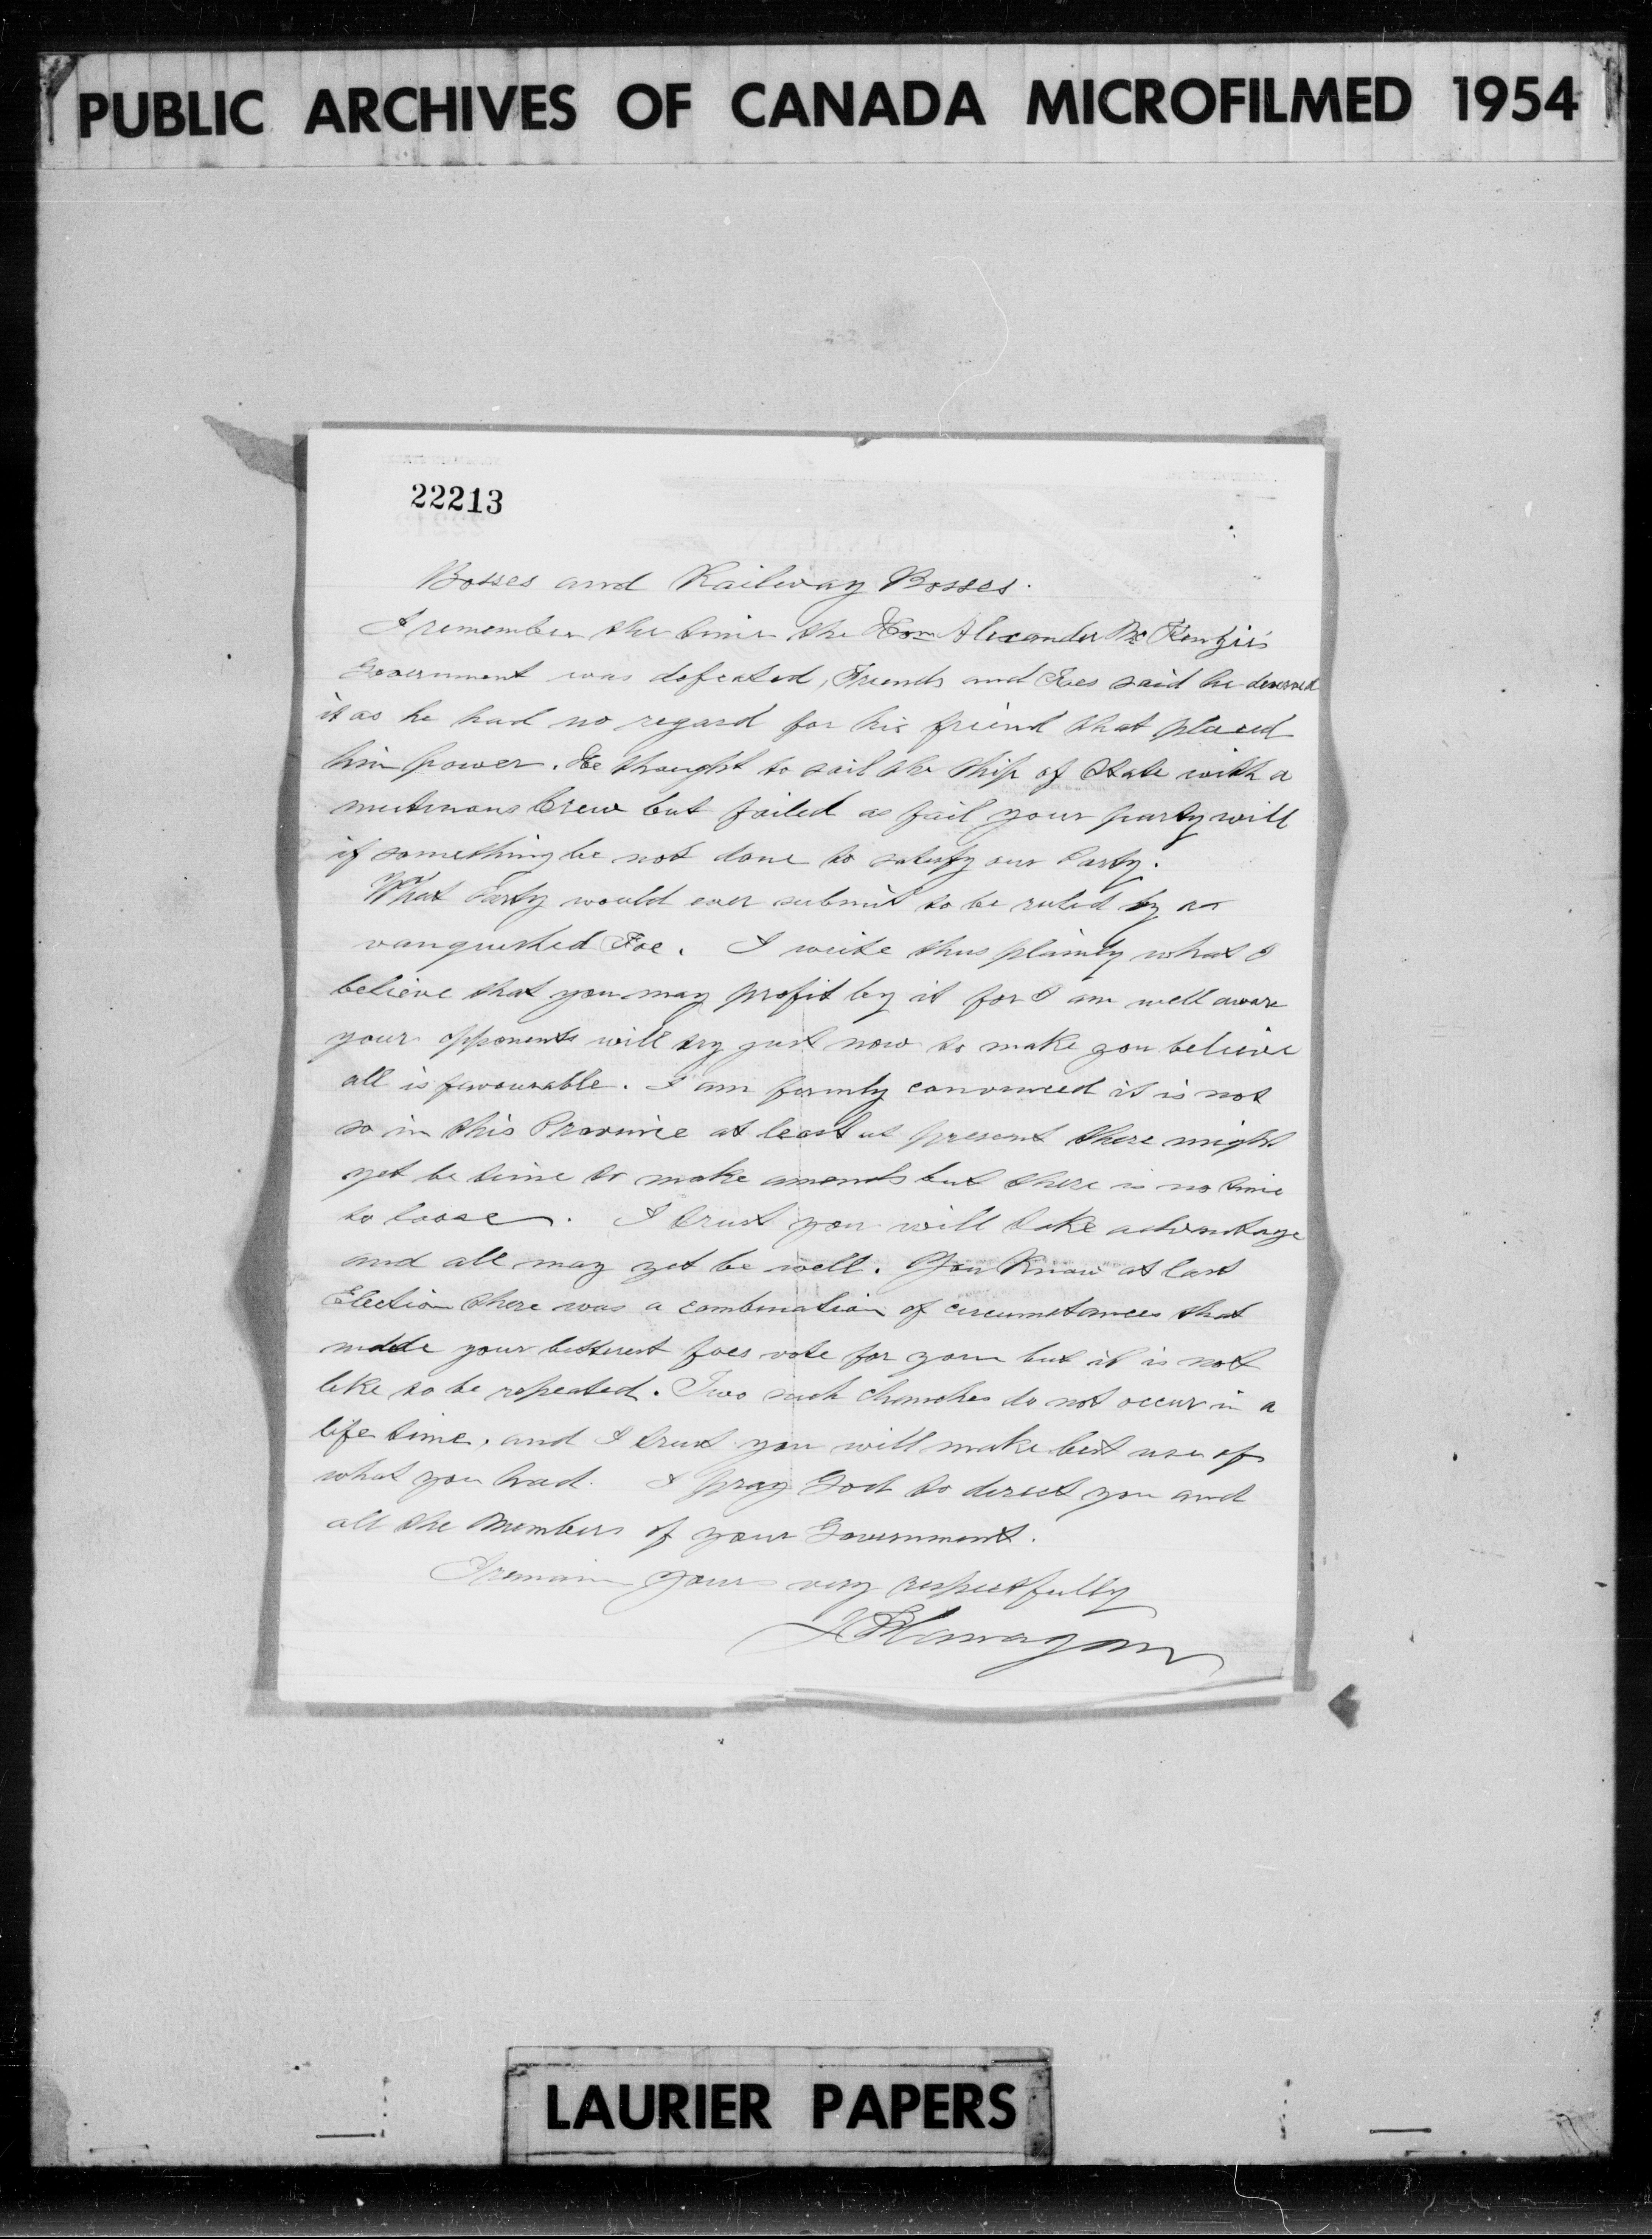 PUBLIC ARCHIVES OF CANADA MICROFILMED 1954
22213
Bosses and Railway Bosses.
I remember the time the Hon Alexander McKenzie's
Government was defeated, Friends and Foes said he deserved
it as he had no regard for his friend that placed
him power. He thought to sail the Ship of State with a
mutinous Crew but failed as fail your party will
if something be not done to satisfy our Party.
What Party would ever submit to be ruled by a
vanquished Foe. I write thus plainly what I
believe that you may profit by it for I am well aware
your opponents will try just now to make you believe
all is favourable. I am firmly convinced it is not
so in this Province at least at present there might
yet be time to make amends but there is no time
to loose. I trust you will take advantage
and all may yet be well. You Know at last
Election there was a combination of circumstances that
made your bitterest foes vote for you but it is not
like to be repeated. Two such chanches do not occur in a
life time, and I trust you will make best use of
what you had. I pray God to direct you and
all the Members of your Government.
I remain yours very respectfully
Flanagan
LAURIER PAPERS